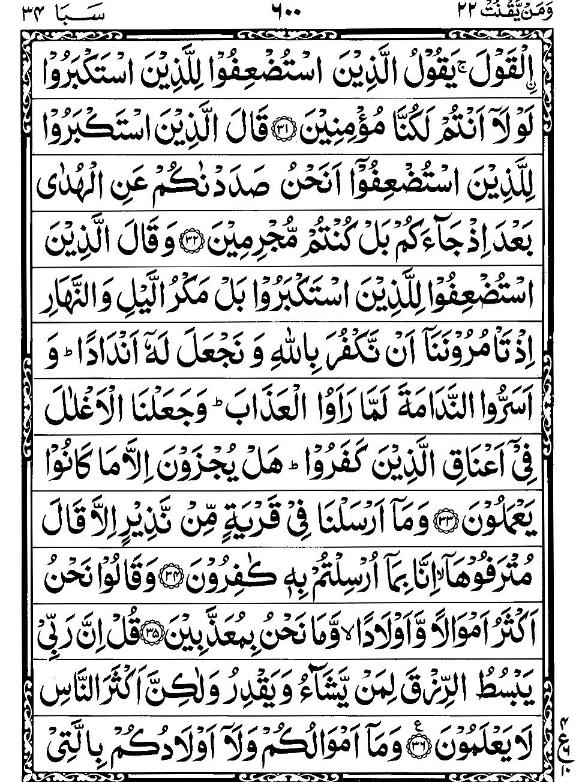 وَمَنْ يَّقْنُتْ ٢٢ ٦٠٠ سَبَا ٣٤
اِلْقَوْلَ ۚ يَقُوْلُ الَّذِيْنَ اسْتُضْعِفُوْا لِلَّذِيْنَ اسْتَكْبَرُوْا
لَوْلَآ اَنْتُمْ لَكُنَّا مُؤْمِنِيْنَ ۝٣١ قَالَ الَّذِيْنَ اسْتَكْبَرُوْا
لِلَّذِيْنَ اسْتُضْعِفُوْٓا اَنَحْنُ صَدَدْنٰكُمْ عَنِ الْهُدٰى
بَعْدَ اِذْ جَآءَكُمْ بَلْ كُنْتُمْ مُّجْرِمِيْنَ ۝٣٢ وَقَالَ الَّذِيْنَ
اسْتُضْعِفُوْا لِلَّذِيْنَ اسْتَكْبَرُوْا بَلْ مَكْرُ الَّيْلِ وَالنَّهَارِ
اِذْ تَاْمُرُوْنَنَآ اَنْ نَّكْفُرَ بِاللّٰهِ وَ نَجْعَلَ لَهٗٓ اَنْدَادًا ؕ وَ
اَسَرُّوا النَّدَامَةَ لَمَّا رَاَوُا الْعَذَابَ ؕ وَجَعَلْنَا الْاَغْلٰلَ
فِيْٓ اَعْنَاقِ الَّذِيْنَ كَفَرُوْا ؕ هَلْ يُجْزَوْنَ اِلَّا مَا كَانُوْا
يَعْمَلُوْنَ ۝٣٣ وَمَآ اَرْسَلْنَا فِيْ قَرْيَةٍ مِّنْ نَّذِيْرٍ اِلَّا قَالَ
مُتْرَفُوْهَآ ۙ اِنَّا بِمَآ اُرْسِلْتُمْ بِهٖ كٰفِرُوْنَ ۝٣٤ وَقَالُوْا نَحْنُ
اَكْثَرُ اَمْوَالًا وَّاَوْلَادًا ۙ وَّمَا نَحْنُ بِمُعَذَّبِيْنَ ۝٣٥ قُلْ اِنَّ رَبِّيْ
يَبْسُطُ الرِّزْقَ لِمَنْ يَّشَآءُ وَيَقْدِرُ وَلٰكِنَّ اَكْثَرَ النَّاسِ
لَا يَعْلَمُوْنَ ۝٣٦ ع وَمَآ اَمْوَالُكُمْ وَلَآ اَوْلَادُكُمْ بِالَّتِيْ